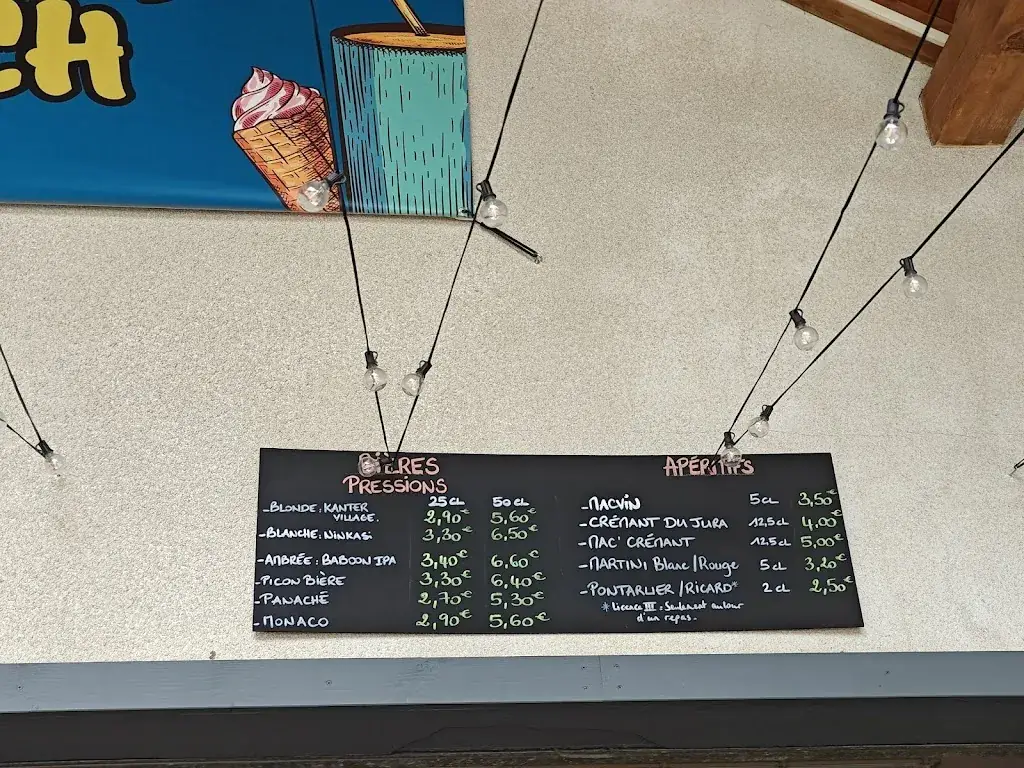 CH
BIÈRES
PRESSIONS
25 CL 50 CL
- BLONDE : KANTER VILLAGE. 2,90€ 5,60€
- BLANCHE : NINKASI 3,30€ 6,50€
- AMBRÉE : BABOON IPA 3,40€ 6,60€
- PICON BIÈRE 3,30€ 6,40€
- PANACHÉ 2,70€ 5,30€
- MONACO 2,90€ 5,60€
APÉRITIFS
- MACVIN 5 CL 3,50€
- CRÉMANT DU JURA 12,5 CL 4,00€
- MAC' CRÉMANT 12,5 CL 5,00€
- MARTINI Blanc / Rouge 5 CL 3,20€
- PONTARLIER / RICARD* 2 CL 2,50€
* Licence III : Seulement autour
d'un repas.